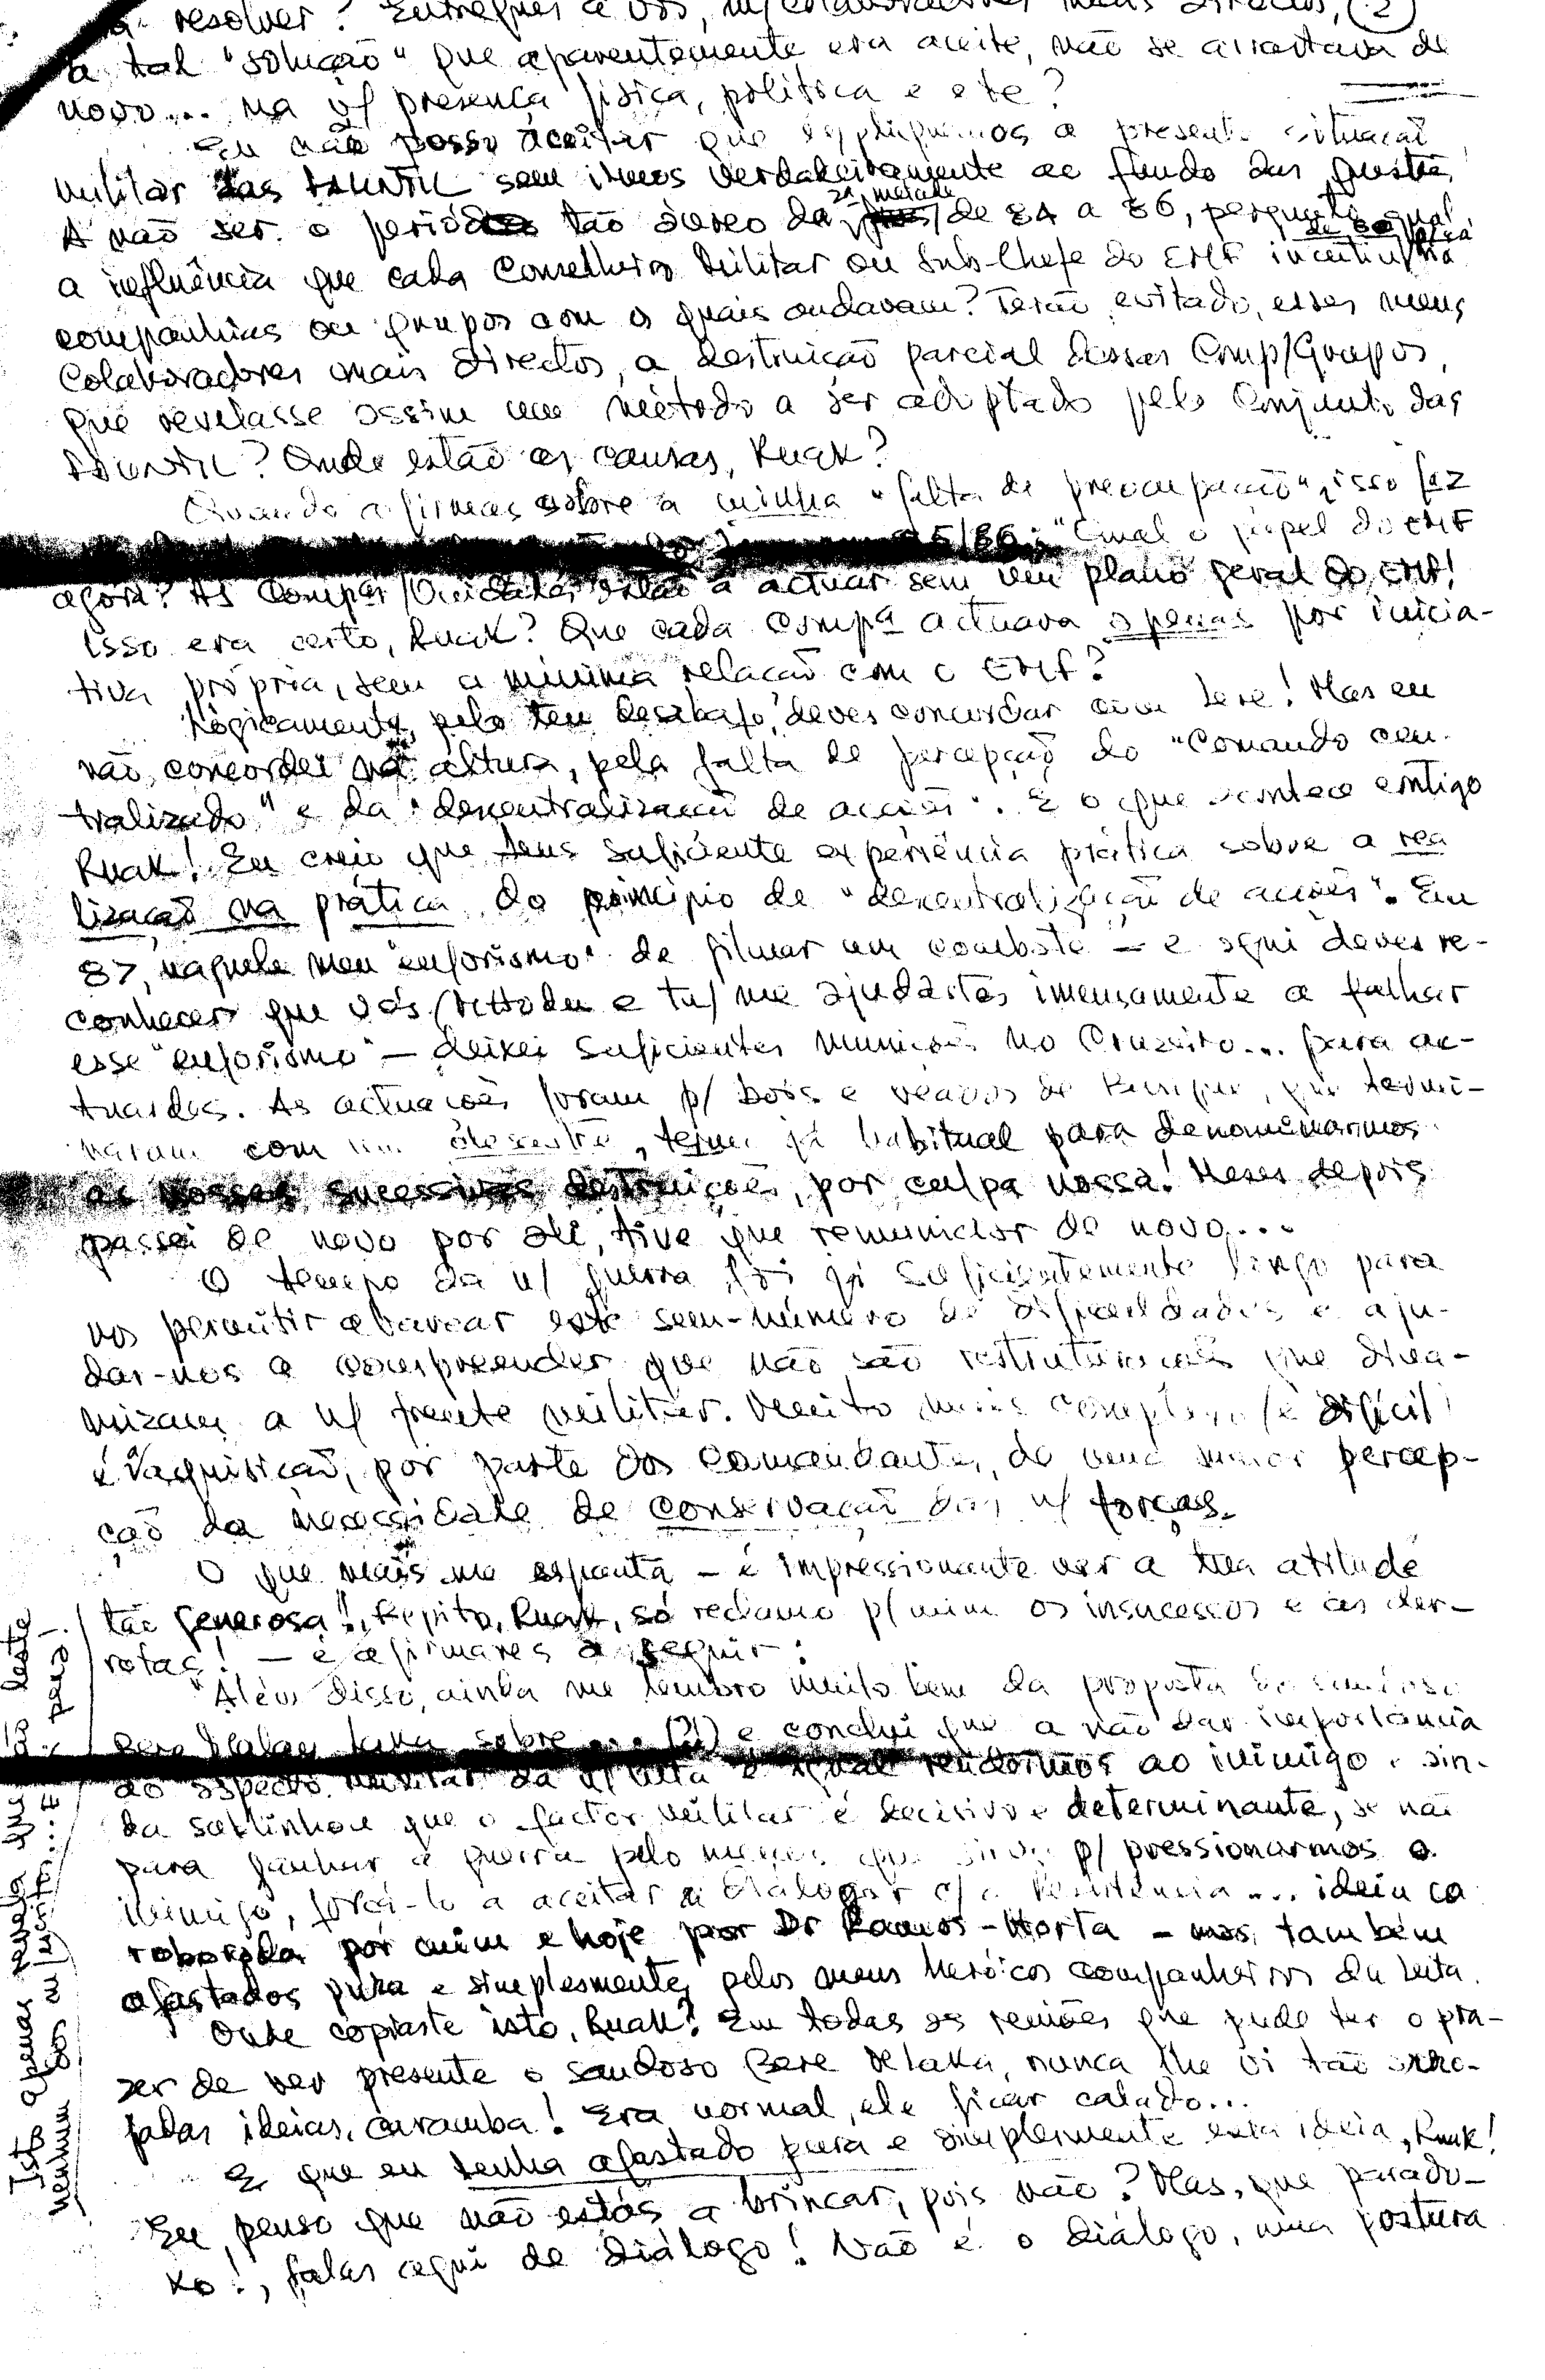 a resolver? Entregues a vós, m/colaboradores mais directos, (2)
a tal "solução" que aparentemente era aceite, não se arrastava de
novo... na v/ presença física, política e etc?
Eu não posso aceitar que expliquemos a presente situação
militar das FALINTIL sem irmos verdadeiramente ao fundo das questões.
A não ser o período tão áureo da 2ª metade de 84 a 86, pergunto qual
a influência que cada Conselheiro Militar ou Sub-Chefe do EMF
companhias ou grupos com os quais andavam? Terão evitado, esses meus
Colaboradores mais directos, a destruição parcial dessas Comp/Grupos,
que revelasse assim um método a ser adoptado pelo Conjunto das
FALINTIL? Onde estão as causas, Ruak?
Quando afirmas sobre a minha "falta de preocupação", isso faz
85/86: "Qual o papel do EMF
agora? As Compas/Unidades estão a actuar sem um plano geral do EMF!
Isso era certo, Ruak? Que cada compª actuava apenas por inicia-
tiva própria, sem a mínima relação com o EMF?
Lògicamente, pelo teu desabafo, deves concordar com Lere! Mas eu
não concordei na altura, pela falta de percepção do "Comando cen-
tralizado" e da "descentralização de acções". É o que acontece contigo
Ruak! Eu creio que tens suficiente experiência prática sobre a rea
lização na prática do princípio de "descentralização de acções". Em
87, naquele meu "euforismo" de filmar um combate — e aqui deves re-
conhecer que vós/ e tu/ me ajudastes imensamente a falhar
esse "euforismo" — deixei suficientes munições no Cruzeiro... para ac-
tuardes. As actuações foram p/ bois e veados de que termi-
naram com um desastre, termo já habitual para denominarmos
as nossas sucessivas destruições, por culpa nossa! Meses depois
passei de novo por ali, tive que remuniciar de novo...
O tempo da n/ guerra foi já suficientemente longo para
nos permitir abarcar este sem-número de dificuldades e aju-
dar-nos a compreender que não são restruturações que dina-
mizam a n/ frente militar. Muito mais complexo (e difícil)
é a aquisição, por parte dos comandantes, de uma maior percep-
ção da necessidade de conservação das n/ forças.
O que mais me espanta — é impressionante ver a tua atitude
tão generosa!, Repito, Ruak, só reclamo p/ mim os insucessos e as der-
rotas! — é afirmares a seguir:
"Além disso, ainda me lembro muito bem da proposta do saudoso
Bere Malay Laka sobre ... (2) e conclui que a não dar importância
ao aspecto militar da n/ luta é igual rendermos ao inimigo. Ain-
da sublinhou que o factor militar é decisivo e determinante, se não
para ganhar a guerra pelo menos que sirva p/ pressionarmos o
inimigo, forçá-lo a aceitar a dialogar c/ a Resistência... ideia co
roborada por mim e hoje por Dr Ramos-Horta — mas, também
afastados pura e simplesmente, pelos meus heróicos companheiros da luta.
Onde copiaste isto, Ruak? Em todas as reuniões que pude ter o pra-
zer de ver presente o saudoso Bere Malaka, nunca lhe vi tão arro-
jadas ideias, caramba! Era normal, ele ficar calado...
E que eu tenha afastado pura e simplesmente esta ideia, Ruak!
Eu penso que não estás a brincar, pois não? Mas, que parado-
xo!, falas aqui de diálogo! Não é o diálogo, uma postura
Isto apenas revela que deste
nenhum